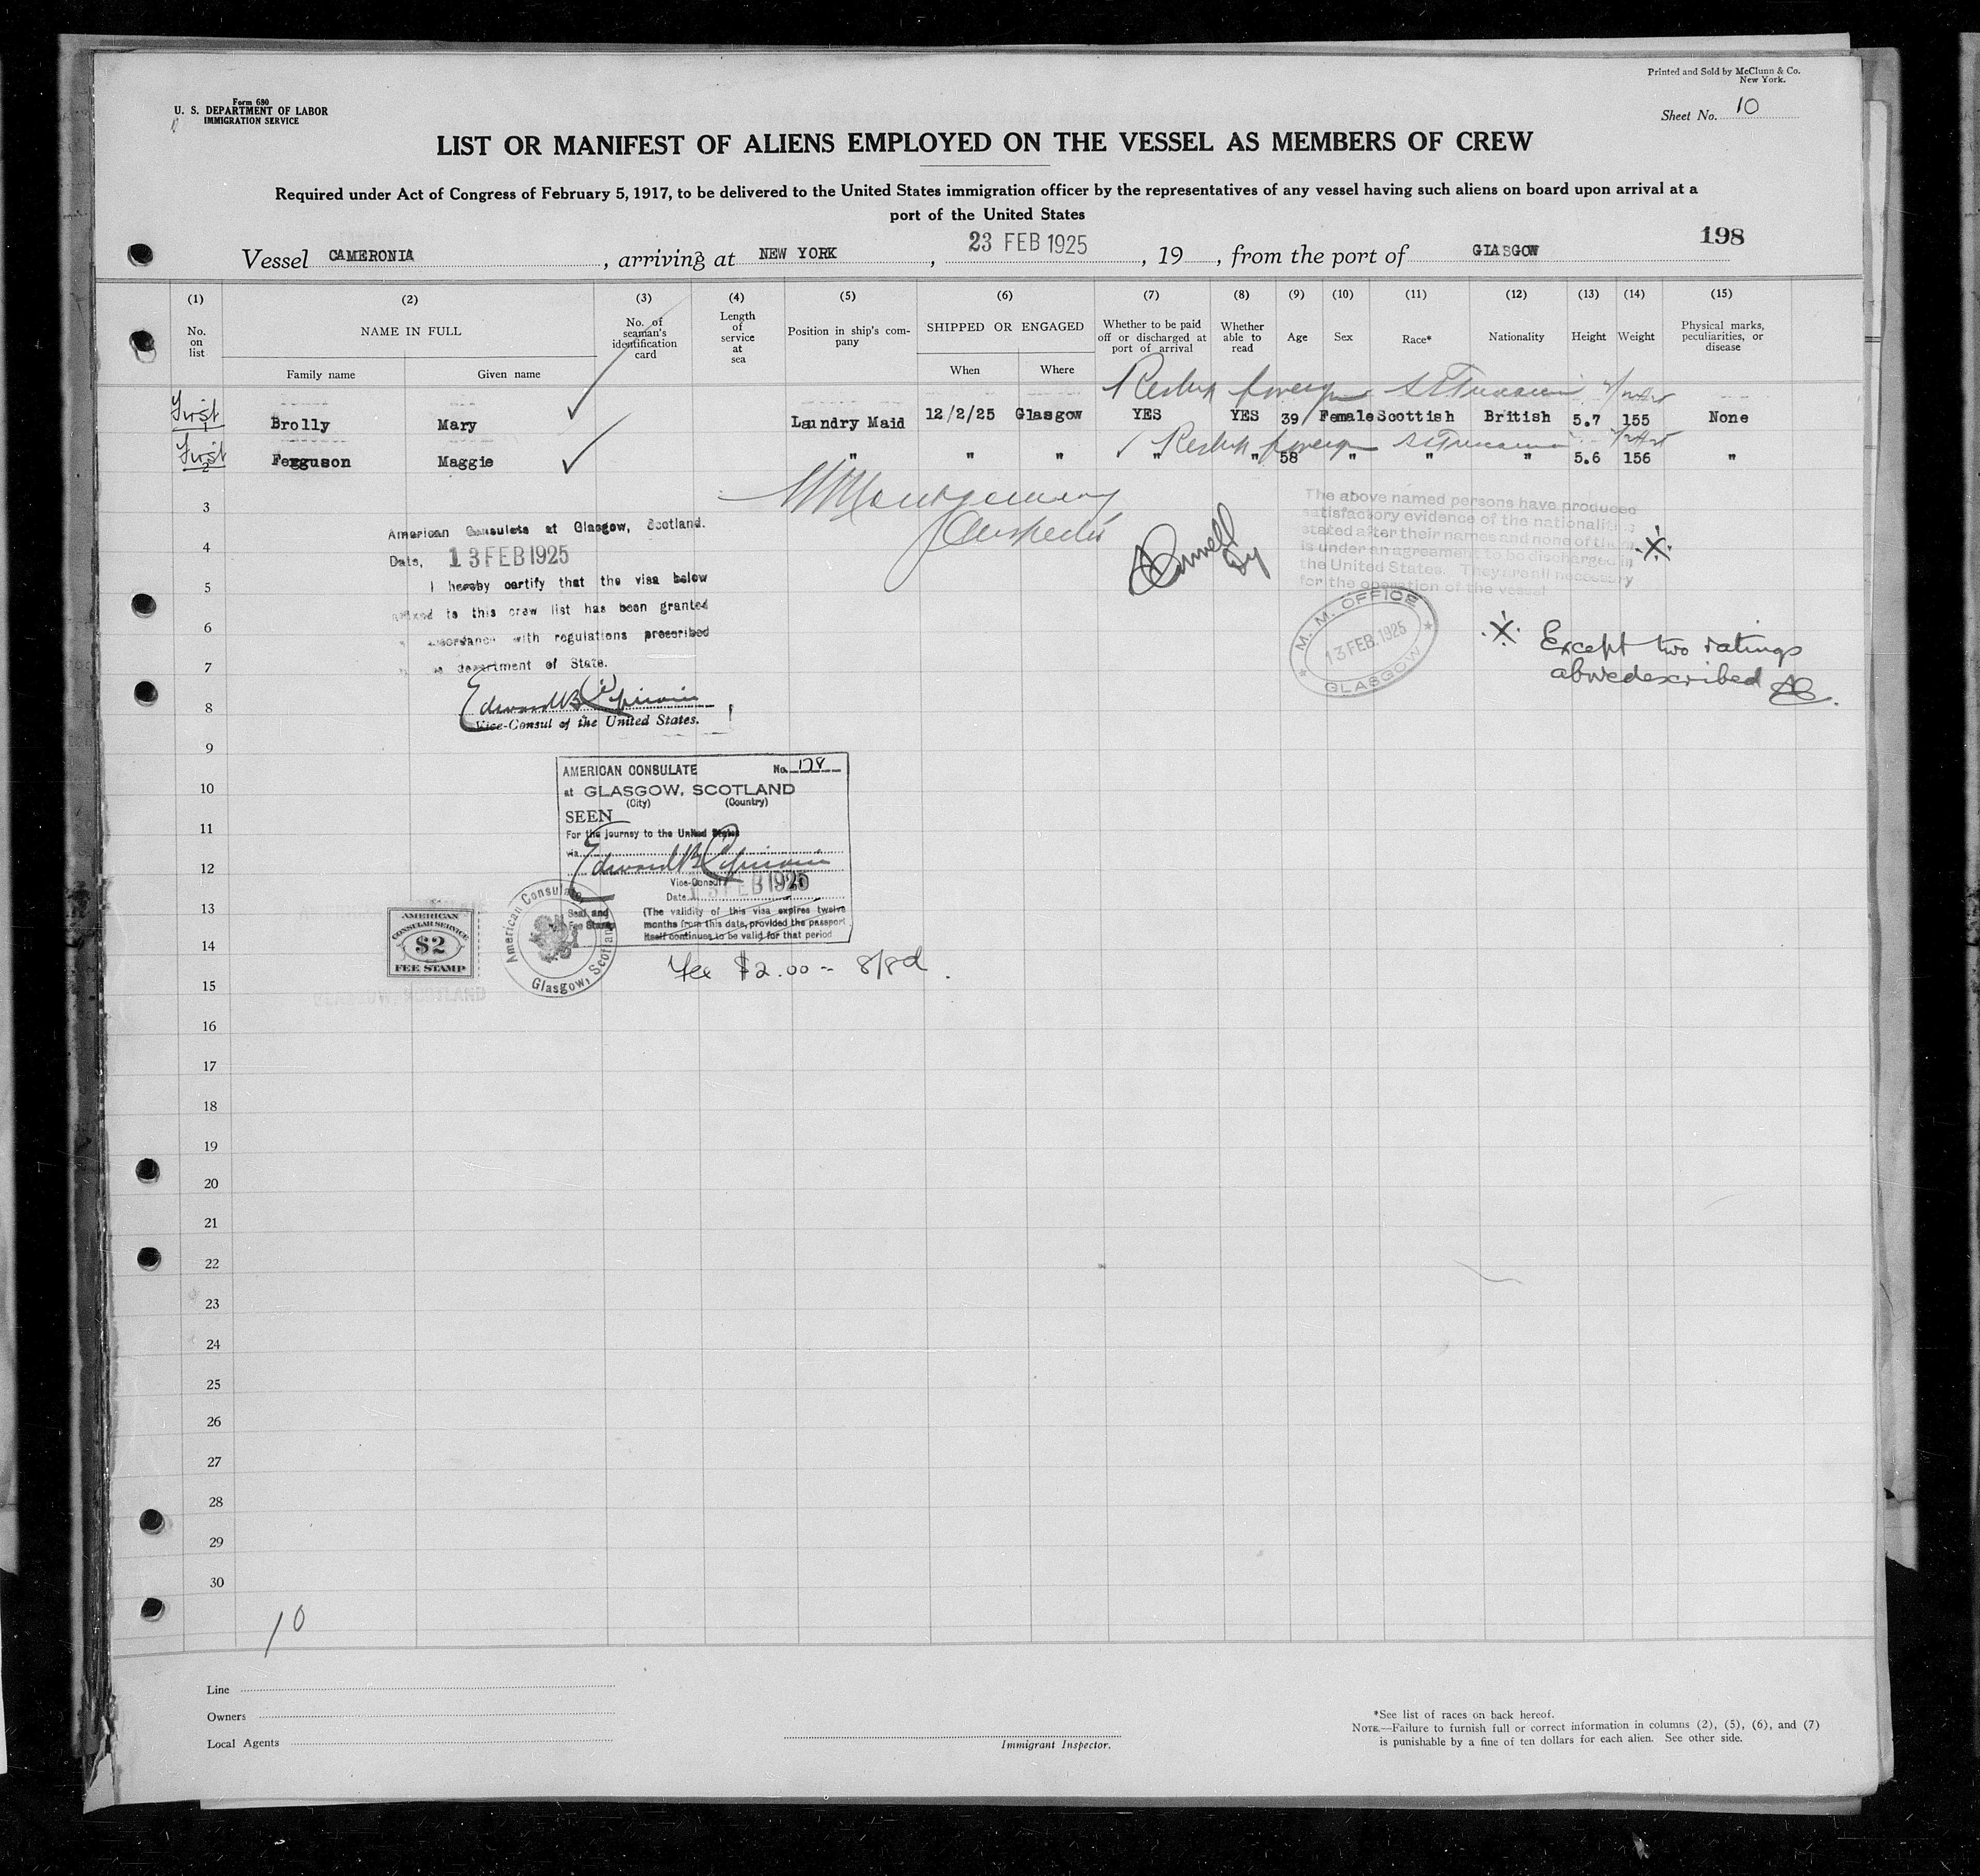 Printed and Sold by McClunn & Co.
New York.
Form 680
U. S. DEPARTMENT OF LABOR
IMMIGRATION SERVICE
Sheet No. 10
LIST OR MANIFEST OF ALIENS EMPLOYED ON THE VESSEL AS MEMBERS OF CREW
Required under Act of Congress of February 5, 1917, to be delivered to the United States immigration officer by the representatives of any vessel having such aliens on board upon arrival at a
port of the United States
198
Vessel CAMERONIA, arriving at NEW YORK, 23 FEB 1925, 19 , from the port of GLASGOW
(1) (2) (3) (4) (5) (6) (7) (8) (9) (10) (11) (12) (13) (14) (15)
No. on list
NAME IN FULL
Family name Given name
No. of seaman's identification card
Length of service at sea
Position in ship's company
SHIPPED OR ENGAGED
When Where
Whether to be paid off or discharged at port of arrival
Whether able to read
Age Sex Race* Nationality Height Weight
Physical marks, peculiarities, or disease
First
1 Brolly Mary Laundry Maid 12/2/25 Glasgow YES YES 39 Female Scottish British 5.7 155 None
First
2 Ferguson Maggie " " " " " 58 " " " 5.6 156 "
3
4
5
6
7
8
9
10
11
12
13
14
15
16
17
18
19
20
21
22
23
24
25
26
27
28
29
30
American Consulate at Glasgow, Scotland.
Date, 13 FEB 1925
I hereby certify that the visa below
affixed to this crew list has been granted
accordance with regulations prescribed
department of State.
Edward B.
Vice-Consul of the United States.
The above named persons have produced
satisfactory evidence of the nationalities
stated after their names and none of them
is under an agreement to be discharged in
the United States. They are all necessary
for the operation of the vessel
M. M. OFFICE
13 FEB. 1925
GLASGOW
Except two ratings
abovedescribed
AMERICAN CONSULATE No. 178
at GLASGOW, SCOTLAND
(City) (Country)
SEEN
For the journey to the United States
via
Edward B.
Vice-Consul
Date 13 FEB 1925
Seal and
Fee Stamp
(The validity of this visa expires twelve
months from this date, provided the passport
itself continues to be valid for that period
American Consulate
Glasgow, Scotland
AMERICAN
CONSULAR SERVICE
$2
FEE STAMP
Fee $2.00 = 8/8d.
10
Line
Owners
Local Agents
Immigrant Inspector.
*See list of races on back hereof.
NOTE.—Failure to furnish full or correct information in columns (2), (5), (6), and (7)
is punishable by a fine of ten dollars for each alien. See other side.